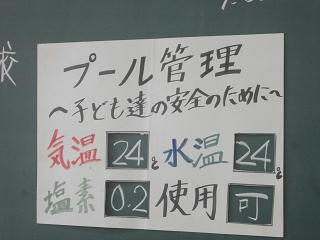 校
プール管理
〜子ども達の安全のために〜
気温 24℃ 水温 24℃
塩素 0.2 使用 可